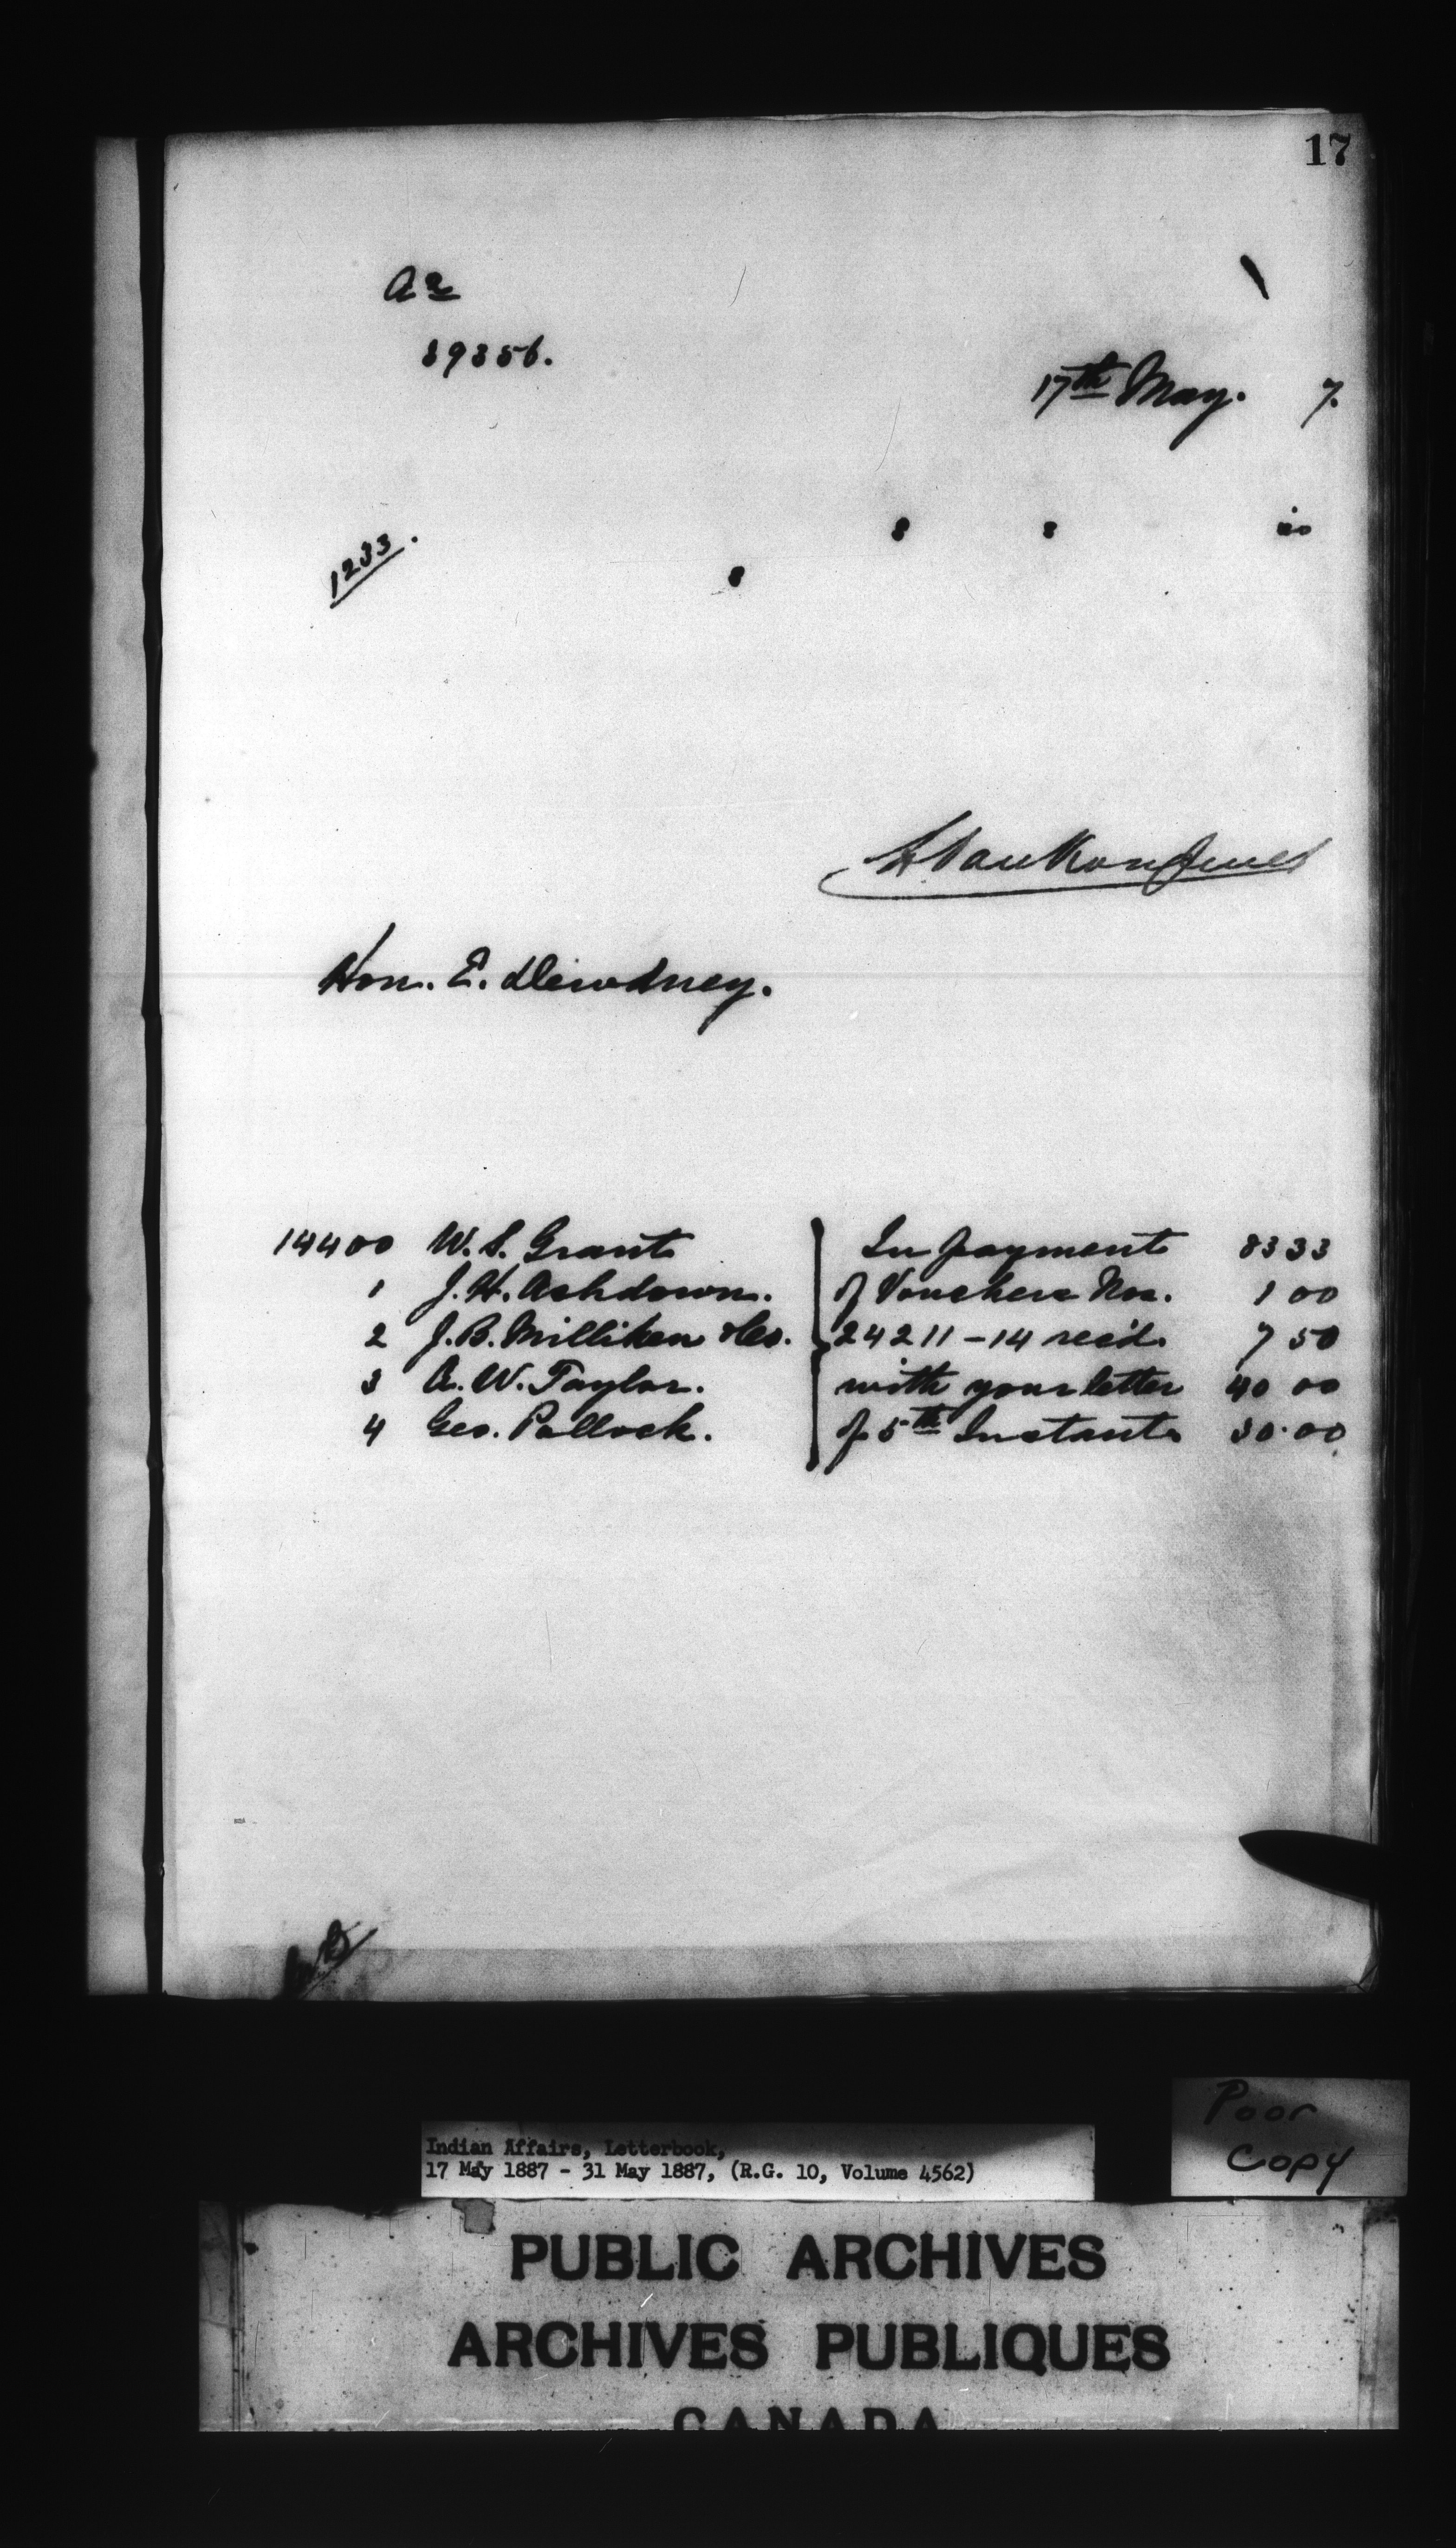 17
A 2
39356.
17th May. 7.
1233.
8 8
8
L. VanKoughnet
Hon. E. Dewdney.
14400 W. S. Grant In payment 83 33
1 J. H. Ashdown. of Vouchers Nos. 1 00
2 J. B. Milliken & Co. 24211-14 rec'd. 7 50
3 A. W. Taylor. with your letter 40 00
4 Geo. Pollock. of 5th Instant 30.00
Poor
Copy
Indian Affairs, Letterbook,
17 May 1887 - 31 May 1887, (R.G. 10, Volume 4562)
PUBLIC ARCHIVES
ARCHIVES PUBLIQUES
CANADA